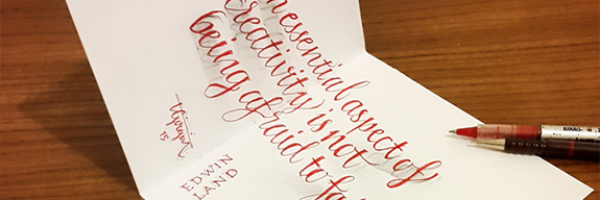 n essential aspect of
creativity is not
being afraid to fa
15
EDWIN
LAND